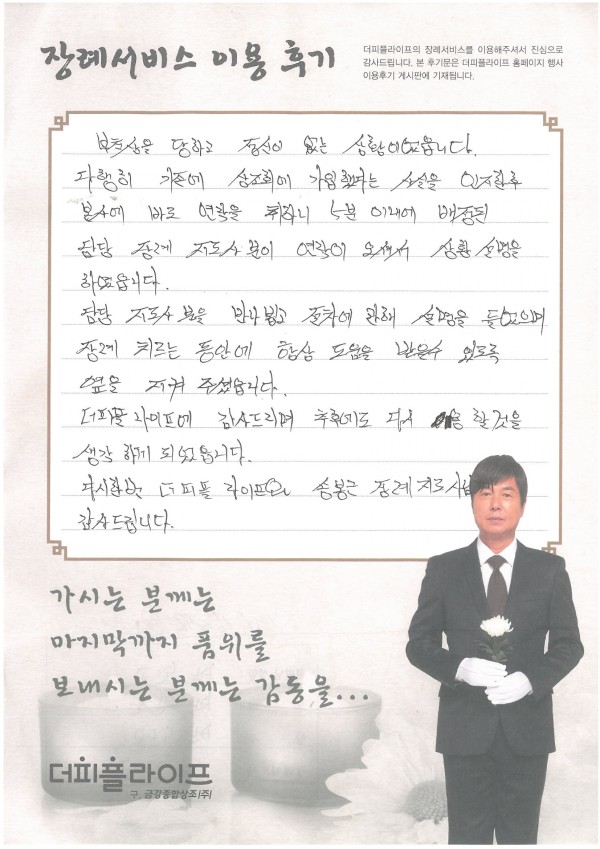 장례서비스 이용 후기
더피플라이프의 장례서비스를 이용해주셔서 진심으로
감사드립니다. 본 후기문은 더피플라이프 홈페이지 행사
이용후기 게시판에 기재됩니다.
부친상을 당하고 정신이 없는 상황이었읍니다.
다행히 기존에 상조회에 가입했다는 사실을 인지한후
본사에 바로 연락을 취하니 5분 이내에 배정된
담당 장례 지도사분이 연락이 오셔서 상황 설명을
하였읍니다.
담당 지도사 분을 만나 뵙고 절차에 관해 설명을 들었으며
장례 치르는 동안에 항상 도움을 받을수 있도록
옆을 지켜 주셨읍니다.
더피플 라이프에 감사드리며 추후에도 다시 이용 할것을
생각 하게 되었읍니다.
다시한번 더피플 라이프와 송봉근 장례 지도사님
감사드립니다.
가시는 분께는
마지막까지 품위를
보내시는 분께는 감동을...
더피플라이프
구. 금강종합상조(주)